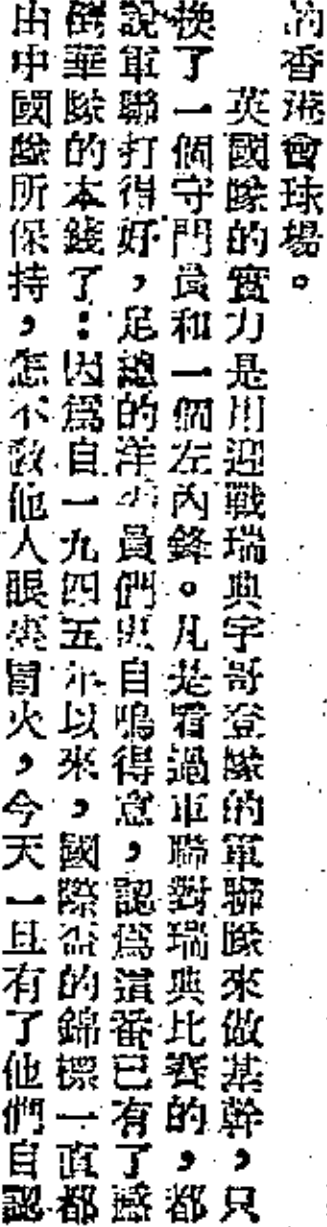 的香港會球場。
英國隊的實力是用迎戰瑞典宇哥登隊的軍聯隊來做基幹，只
換了一個守門員和一個左內鋒。凡是看過軍聯對瑞典比賽的，都
說軍聯打得好，足總的洋委員們更自鳴得意，認爲這番已有了贏
倒華隊的本錢了：因爲自一九四五年以來，國際盃的錦標一直都
由中國隊所保持，怎不敎他人眼裏冒火，今天一旦有了他們自認